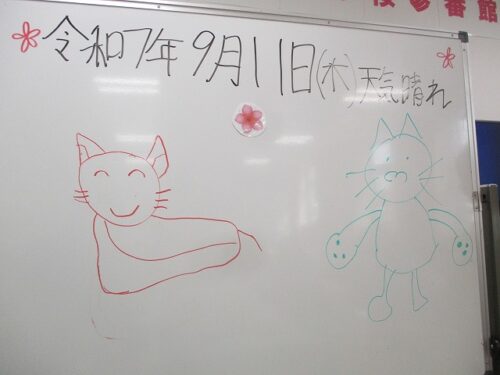 令和7年9月11日(木)天気晴れ
番館